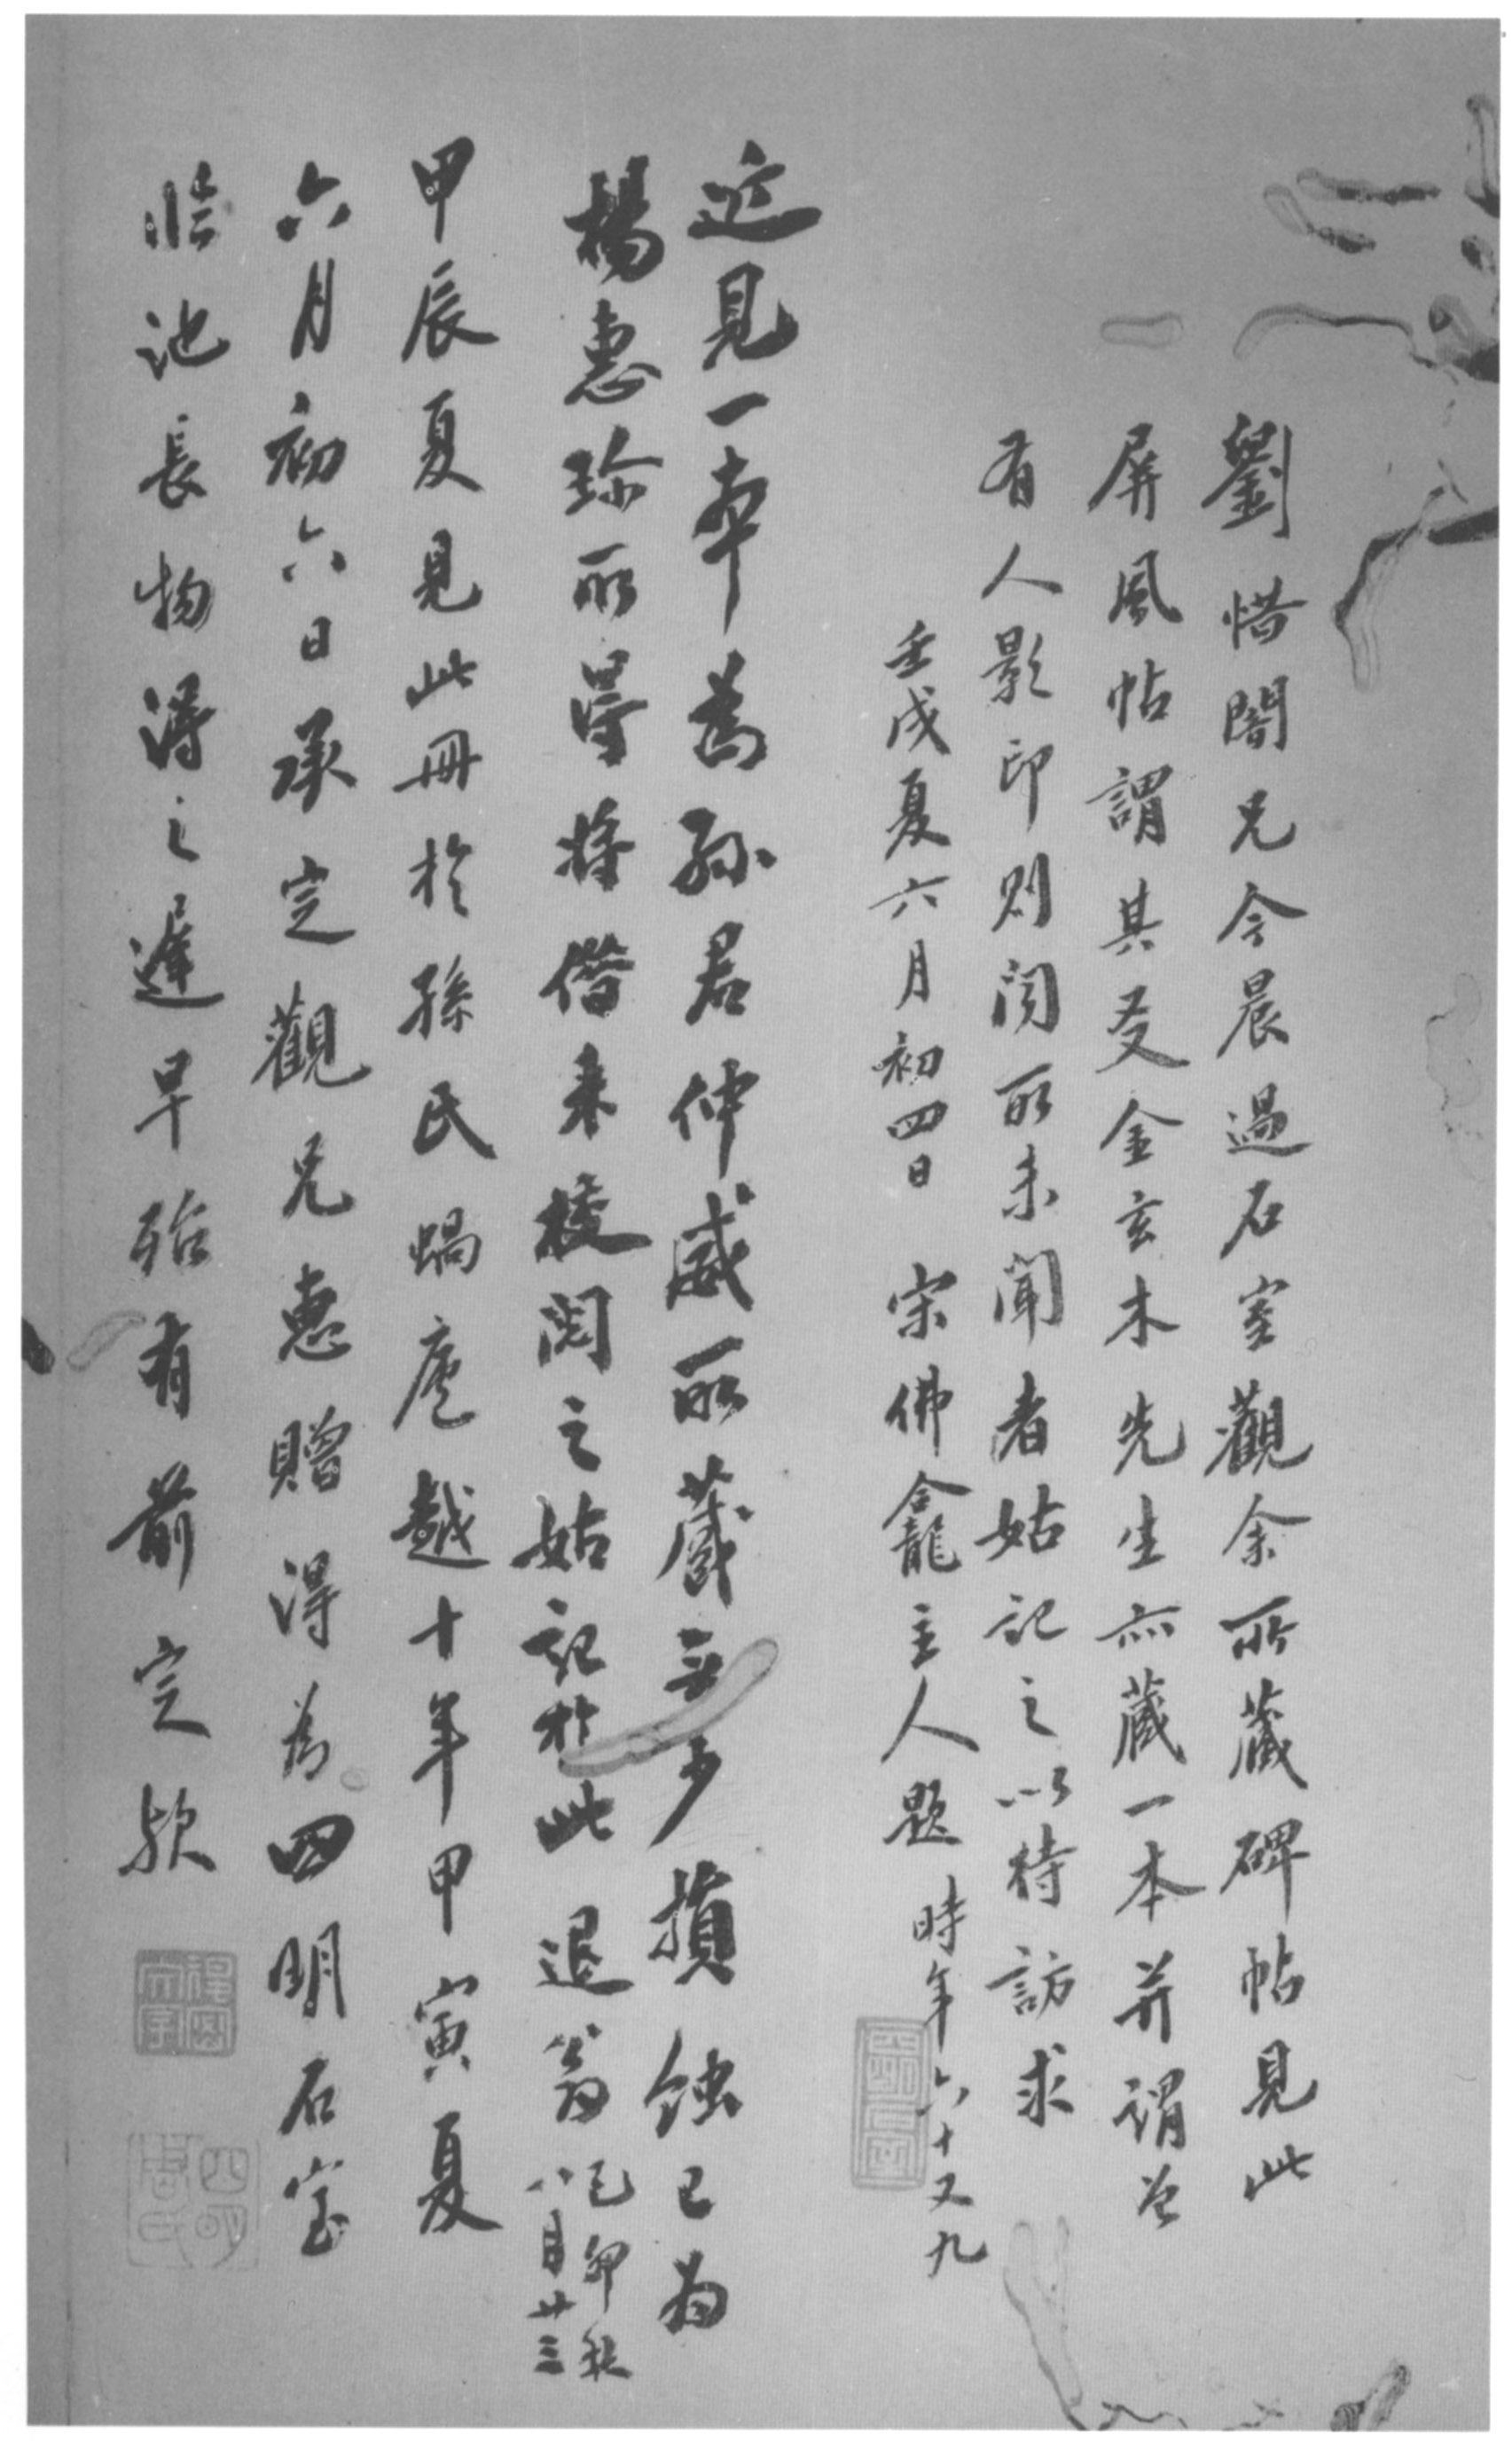 劉惜闇兄今晨過石室觀余所藏碑帖見此
屏風帖謂其友金玄木先生亦藏一本并謂曾
有人影印則閱所未聞者姑記之以待訪求
壬戌夏六月初四日 宋佛龕主人題 時年六十又九
近見一本為孫君仲威所藏無少損蝕已為
楊惠珍所得將借来校閱之姑記於此 退翁 己卯秋
八月廿三
甲辰夏見此冊於孫氏蝸廬越十年甲寅夏
六月初六日承定觀兄惠贈得為四明石室
臨池長物得之遲早殆有前定歟
四明
周氏